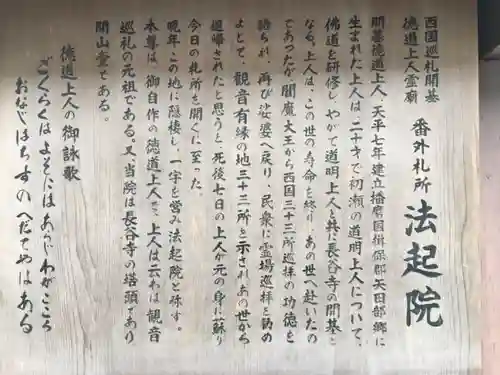 西国巡礼開基
徳道上人霊廟
番外札所 法起院
開基徳道上人、天平七年建立播磨国揖保郡矢田部郷に
生まれた上人は二十才で初瀬の道明上人について、
佛道を研修し、やがて道明上人と共に長谷寺の開基と
なる。上人は、この世の寿命を終り、あの世へ赴いたの
であったが閻魔大王から西国三十三所巡拝の功徳を
聴かれ、再び娑婆へ戻り、民衆に霊場巡拝を勧め
よとて、観音有縁の地三十三所を示されあの世から
追帰されたと思うと、死後七日の上人が元の身に蘇り
今日の札所を開くに至った。
晩年、この地に隠棲し、一宇を営み法起院と称す。
本尊は、御自作の徳道上人で、上人は云わば観音
巡礼の元祖である。又、当院は長谷寺の塔頭であり
開山堂である。
徳道上人の御詠歌
ごくらくは よそにはあらじ わがこころ
おなじはちすの へだてやはある